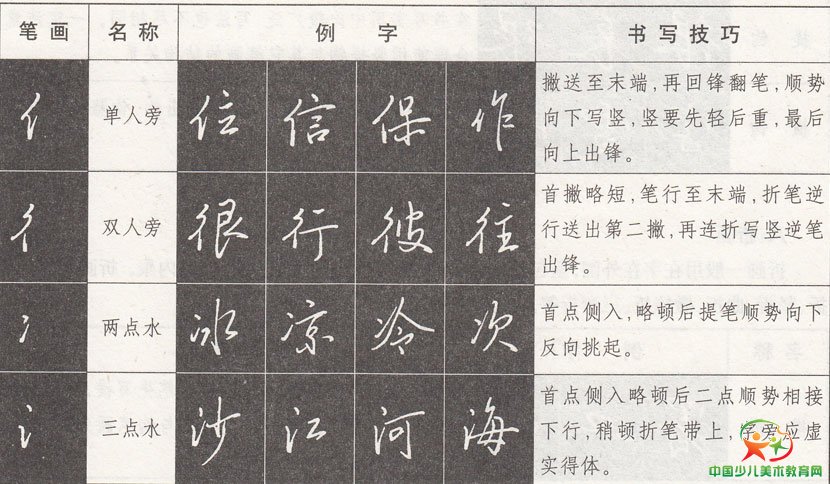 笔画 名称 例字 书写技巧
亻 单人旁 位 信 保 作
撇送至末端,再回锋翻笔,顺势
向下写竖,竖要先轻后重,最后
向上出锋。
彳 双人旁 很 行 彼 往
首撇略短,笔行至末端,折笔逆
行送出第二撇,再连折写竖逆笔
出锋。
冫 两点水 冰 凉 冷 次
首点侧入,略顿后提笔顺势向下
反向挑起。
氵 三点水 沙 江 河 海
首点侧入略顿后二点顺势相接
下行,稍顿折笔带上,字旁应虚
实得体。
中国少儿美术教育网